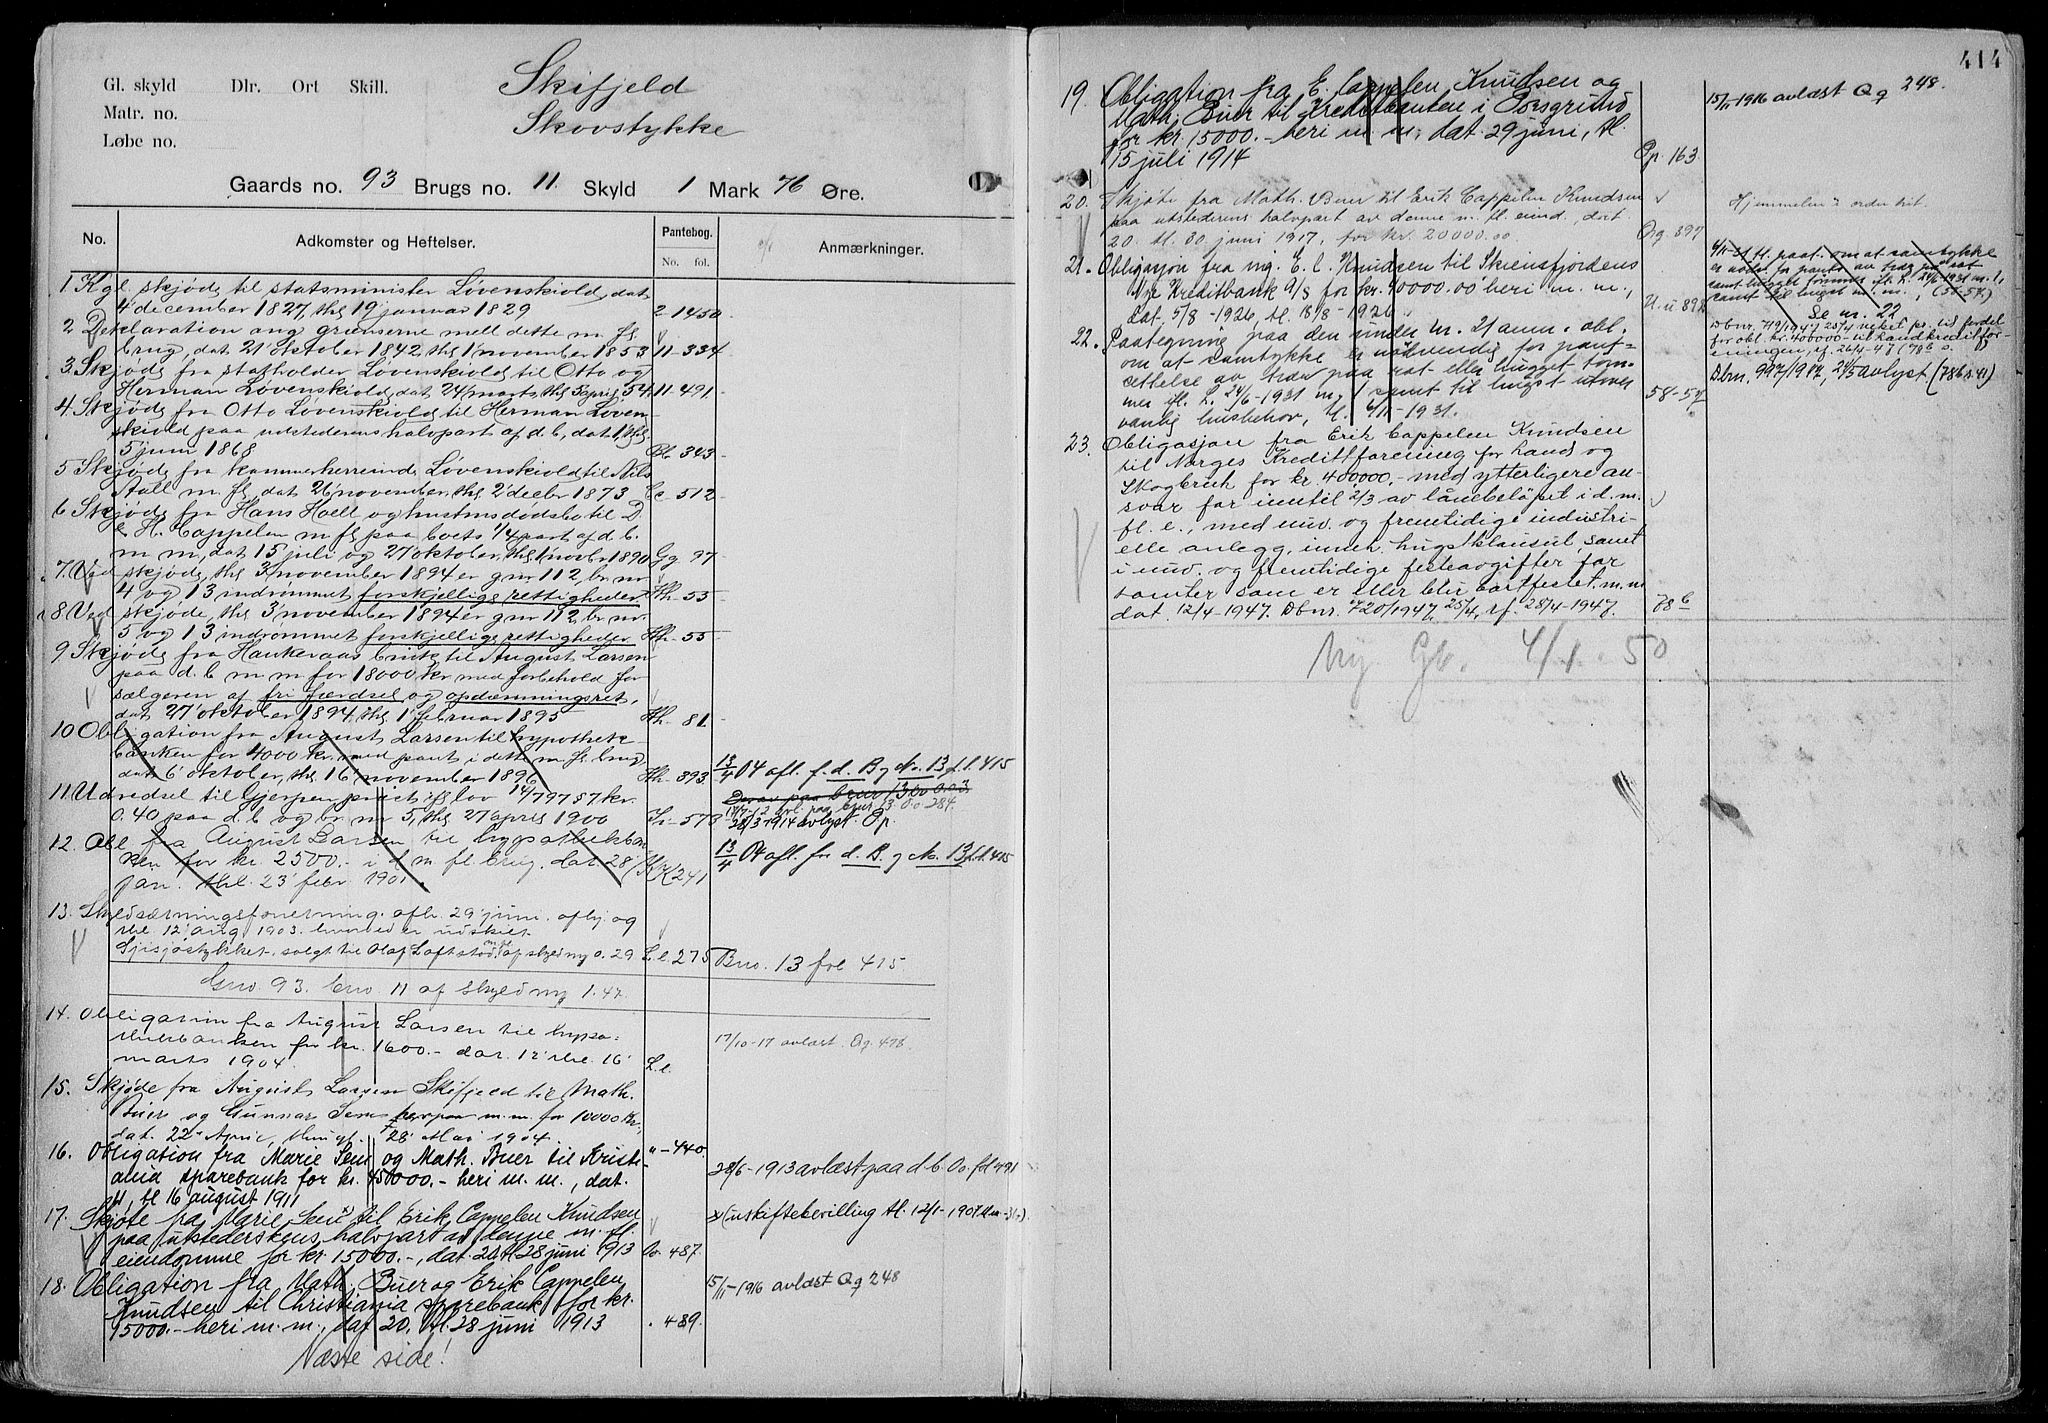 Gl. skyld Dlr. Ort Skill.
Matr. no.
Løbe no.
Skifjeld
Skovstykke
Gaards no. 93 Brugs no. 11. Skyld 1 Mark 76 Øre.
No. Adkomster og Heftelser. Pantebog. Anmærkninger.
No. fol.
1 Kgl. skjøde til statsminister Løvenskiold, dat
4' december 1827, thgl 19 januar 1829 2 1450
2 Deklaration ang grænserne mell dette m fl
brug, dat 21' oktober 1842, thgl 1' november 1853 11-334
3. Skjøde fra statholder Løvenskiold til Otto og
Herman Løvenskiold, dat 24' marts, thgl 5 april 54. 11-491
4. Skjøde fra Otto Løvenskiold til Herman Løven-
skiold paa udstederens halvpart af d. b, dat 1, thgl
5' juni 1868 Bb. 343
5 Skjøde fra kammerherreinde Løvenskiold til Nils
Aall m. fl, dat 26' november, thgl 2' decbr 1873 Cc 512
6 Skjøde fra Hans Hoell og hustrus dødsbo til D
C. H. Cappelen m fl paa boets 1/4 part af d. b.
m m, dat 15 juli og 27 oktober, thgl 1' novbr 1890 Gg 97
7. Ved skjøde, thgl 3' november 1894 er gnr 112, br. nr
4 og 13 indrømmet forskjellige rettigheder Hh-55
8 Ved skjøde, thgl 3' november 1894 er gnr 112, br. nr.
5 og 13 indrømmet forskjellige rettigheder Hh-55
9 Skjøde fra Haukevaas bruk til August Larsen
paa d. b m m for 18000 kr med forbehold for
sælgeren af fri færdsel og opdæmningsret,
dat 27' oktober 1894, thgl 1' februar 1895 Hh-81.
10 Obligation fra August Larsen til hypothek-
banken for 4000 kr. med pant i dette m fl brug
dat 6' oktober, thgl 16' november 1896 Hh-893. 13/4 04 afl. f. d. B og No. 13 f. l. 415
11. Udredsel til Gjerpen præst ifl lov 14/7 97 57 kr.
0.40 paa d. b og br nr 5, thgl 27 april 1900 578 28/3-1914 avlyst. Op.
12. Obl fra August Larsen til hypothekban
ken for kr. 2500.- i d m fl brug, dat 28'
jan. thl. 23' febr 1901. KK 241 13/4 04 afl. for d. B. og No. 13 f. l. 415
13. Skyldsætningsforretning. afh. 29' juni. afhj og
thl. 12' aug 1903. hvorved er udskilt
Sjisjøstykket. solgt til Olaf Loftstød, af skyld my 0.29 L.l. 275 Bno. 13 fol 415.
Gno 93. bno 11 af skyld my 1.47.
14. Obligation fra August Larsen til hypo-
thekbanken for kr. 1600.- dat. 12' thl. 16'
marts 1904. L.l. 17/10-17 avlæst. Qq. 478.
15. Skjøde fra August Larsen Skifjeld til Math.
Buer og Gunnar Sem herpaa m.m. for 10000 kr,
dat. 22' April, thingl. 28' Mai 1904. "-440.
16. Obligation fra Marie Sem og Math. Buer til Kristi-
ania sparebank for kr. 45000.- heri m. m., dat.
tl 16 august 1911 28/6-1913 avlæst paa d. b. Oo. fol 491
17. Skjøte fra Marie Sem x) til Erik Cappelen Knudsen x) (uskiftebevilling tl. 12/1-1907
paa utstederskens halvpart av denne m. fl.
eiendomme for kr. 15000.-, dat. 20. tl. 28 juni 1913 Oo. 487.
18. Obligation fra Math. Buer og Erik Cappelen 15/11-1916 avlæst Qq 248
Knudsen til Christiania sparebank for kr.
15000.- heri m. m., dat 20, tl. 28 juni 1913 . 489.
Næste side!
414
19. Obligation fra E. Cappelen Knudsen og 15/11-1916 avlæst Qq 248.
Math. Buer til Kreditbanken i Porsgrund
for kr. 15000.- heri m. m., dat. 29 juni, tl.
15 juli 1914 Op. 163.
20. Skjøte fra Math. Buer til Erik Cappelen Knudsen Hjemmelen i orden
paa utstederens halvpart av denne m. fl. eiend., dat.
20. tl. 30. juni 1917, for kr. 20000.00 Qq. 397
21. Obligasjon fra ing. E. C. Knudsen til Skiensfjordens
Nye Kreditbank A/S for kr. 40000.00 heri m. m.,
dat. 5/8-1926, tl. 18/8-1926. U. u 898
Se nr. 22
22. Paategning paa den under nr. 21 anm. obl.
om at samtykke er nødvendig for pant-
settelse av trær paa rot eller hugget tøm-
mer ifl. L. 24/6-1931 m. / samt til hugst utover
vanlig husbehov, tl. 6/11-1931. 58-57
23. Obligasjon fra Erik Cappelen Knudsen
til Norges Kredittforening for Land og
Skogbruk for kr. 400000.- med ytterligere an-
svar for inntil 2/3 av lånebeløpet i d. m.
fl. e., med nuv. og fremtidige industri-
elle anlegg, inneh. hugstklausul, samt
i nuv. og fremtidige festeavgifter for
tomter som er eller blir bortfestet m. m
dat. 12/4-1947. Dbnr. 720/1947, 25/4, rf. 28/4-1947. 78b
Dbnr. 997/1947, 24/5 avlyst (78b s. 41)
Ny Gb. 4/1-50